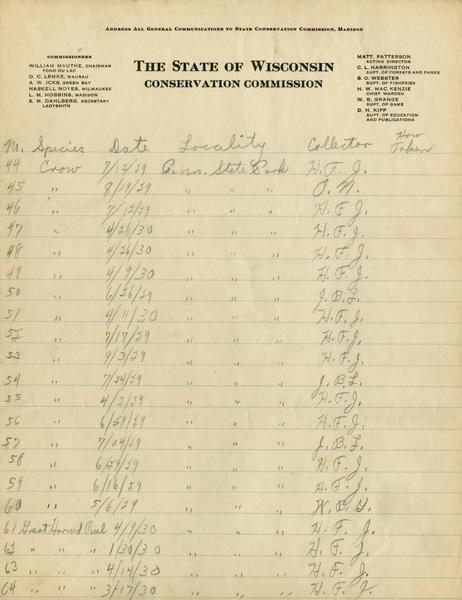 ADDRESS ALL GENERAL COMMUNICATIONS TO STATE CONSERVATION COMMISSION, MADISON
COMMISSIONERS
WILLIAM MAUTHE, CHAIRMAN
FOND DU LAC
O. C. LEMKE, WAUSAU
A. W. ICKS, GREEN BAY
HASKELL NOYES, MILWAUKEE
L. M. HOBBINS, MADISON
E. M. DAHLBERG, SECRETARY
LADYSMITH
THE STATE OF WISCONSIN
CONSERVATION COMMISSION
MATT. PATTERSON
ACTING DIRECTOR
C. L. HARRINGTON
SUPT. OF FORESTS AND PARKS
B. O. WEBSTER
SUPT. OF FISHERIES
H. W. MAC KENZIE
CHIEF WARDEN
W. B. GRANGE
SUPT. OF GAME
D. H. KIPP
SUPT. OF EDUCATION
AND PUBLICATIONS
Species Date Locality Collector How Taken
44 Crow 7/12/29 State Park H. F. J.
45 " 8/19/29 " " "
46 " 7/12/29 " " " H. F. J.
47 " 4/26/30 " " " H. F. J.
48 " 4/26/30 " " " H. F. J.
49 " 4/9/30 " " " H. F. J.
50 " 6/26/29 " " " J. B. L.
51 " 4/11/30 " " " H. F. J.
52 " 7/17/29 " " " H. F. J.
53 " 9/3/29 " " " H. F. J.
54 " 7/24/29 " " " J. B. L.
55 " " " " H. F. J.
56 " 6/29/29 " " " H. F. J.
57 " 7/24/29 " " " J. B. L.
58 " 6/29/29 " " " H. F. J.
59 " 6/16/29 " " " H. F. J.
60 " 5/6/29 " " "
61 Great Horned Owl 4/9/30 " " " H. F. J.
62 " " " 1/30/30 " " " H. F. J.
63 " " " 4/14/30 " " " H. F. J.
64 " " " 3/17/30 " " " H. F. J.